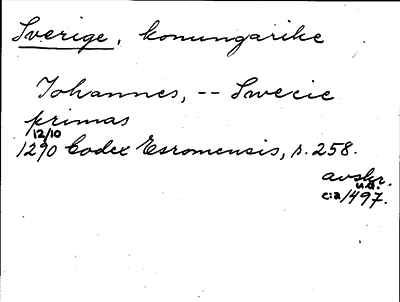 Sverige, konungarike
Johannes, -- Swecie
primas
12/10
1290 Codex Esromensis, s. 258.
avskr.
u.å.
c:a 1497.